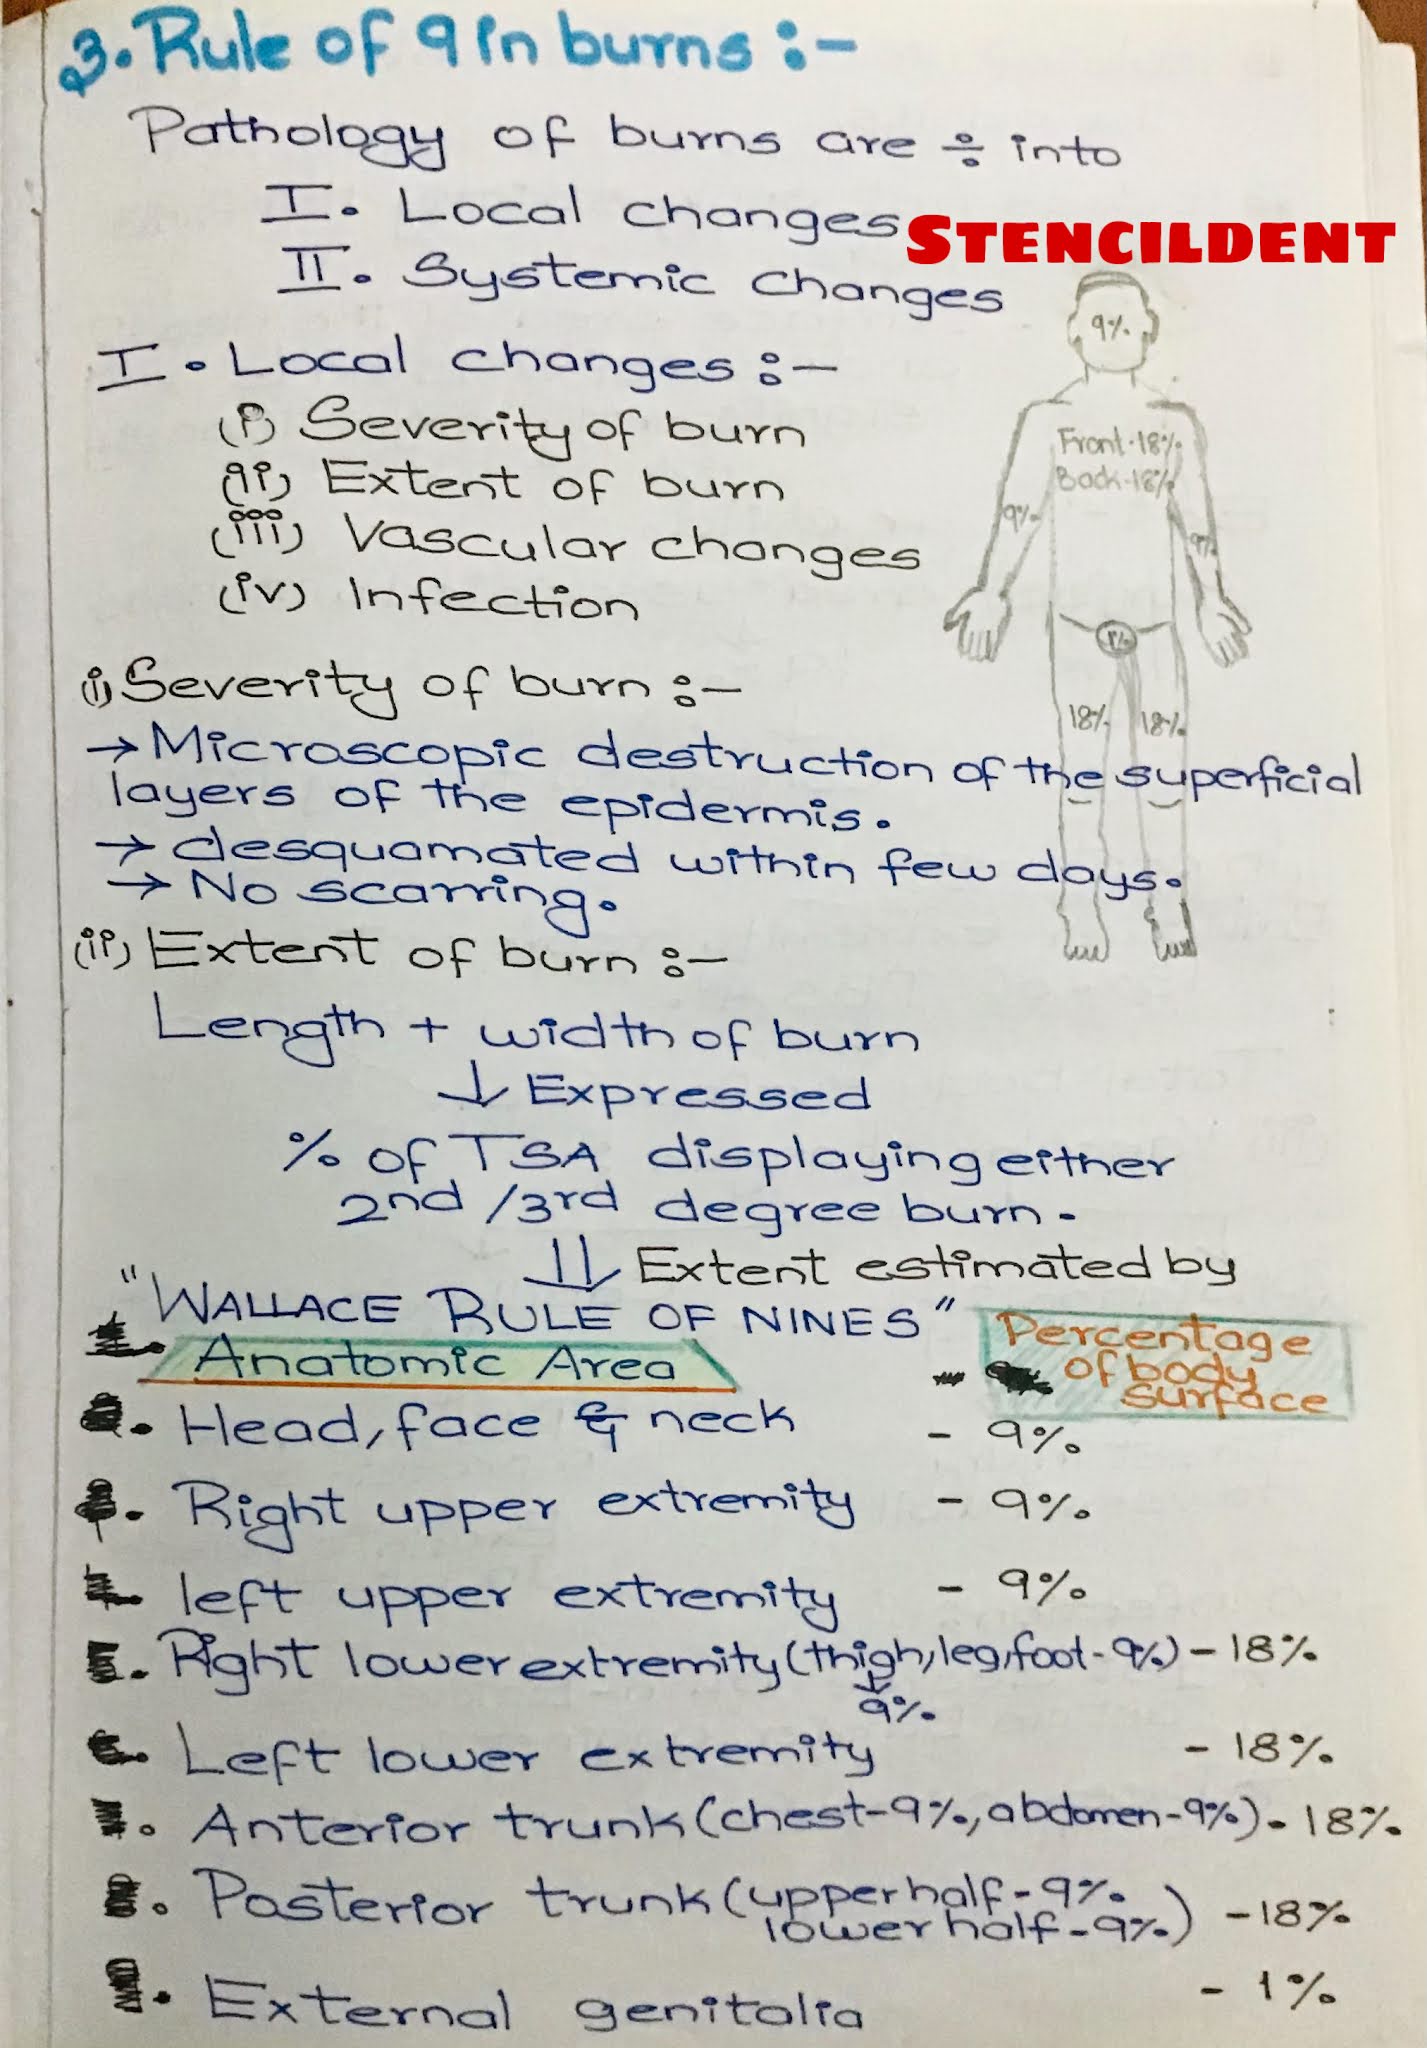 3. Rule of 9 in burns :-
Pathology of burns are ÷ into
I. Local changes
STENCILDENT
II. Systemic changes
9%
I. Local changes :-
(i) Severity of burn
Front-18%
(ii) Extent of burn
Back-18%
9%
(iii) Vascular changes
9%
(iv) Infection
1%
(i) Severity of burn :-
18% 18%
→ Microscopic destruction of the superficial
layers of the epidermis.
→ desquamated within few days.
→ No scarring.
(ii) Extent of burn :-
Length + width of burn
↓ Expressed
% of TSA displaying either
2nd /3rd degree burn.
⇓ Extent estimated by
"WALLACE RULE OF NINES"
Anatomic Area - Percentage
of body
surface
Head, face & neck - 9%
Right upper extremity - 9%
left upper extremity - 9%
Right lower extremity (thigh, leg, foot - 9%) - 18%
↓
9%
Left lower extremity - 18%
Anterior trunk (chest-9%, abdomen-9%) - 18%
Posterior trunk (upper half - 9%
lower half - 9%) - 18%
External genitalia - 1%